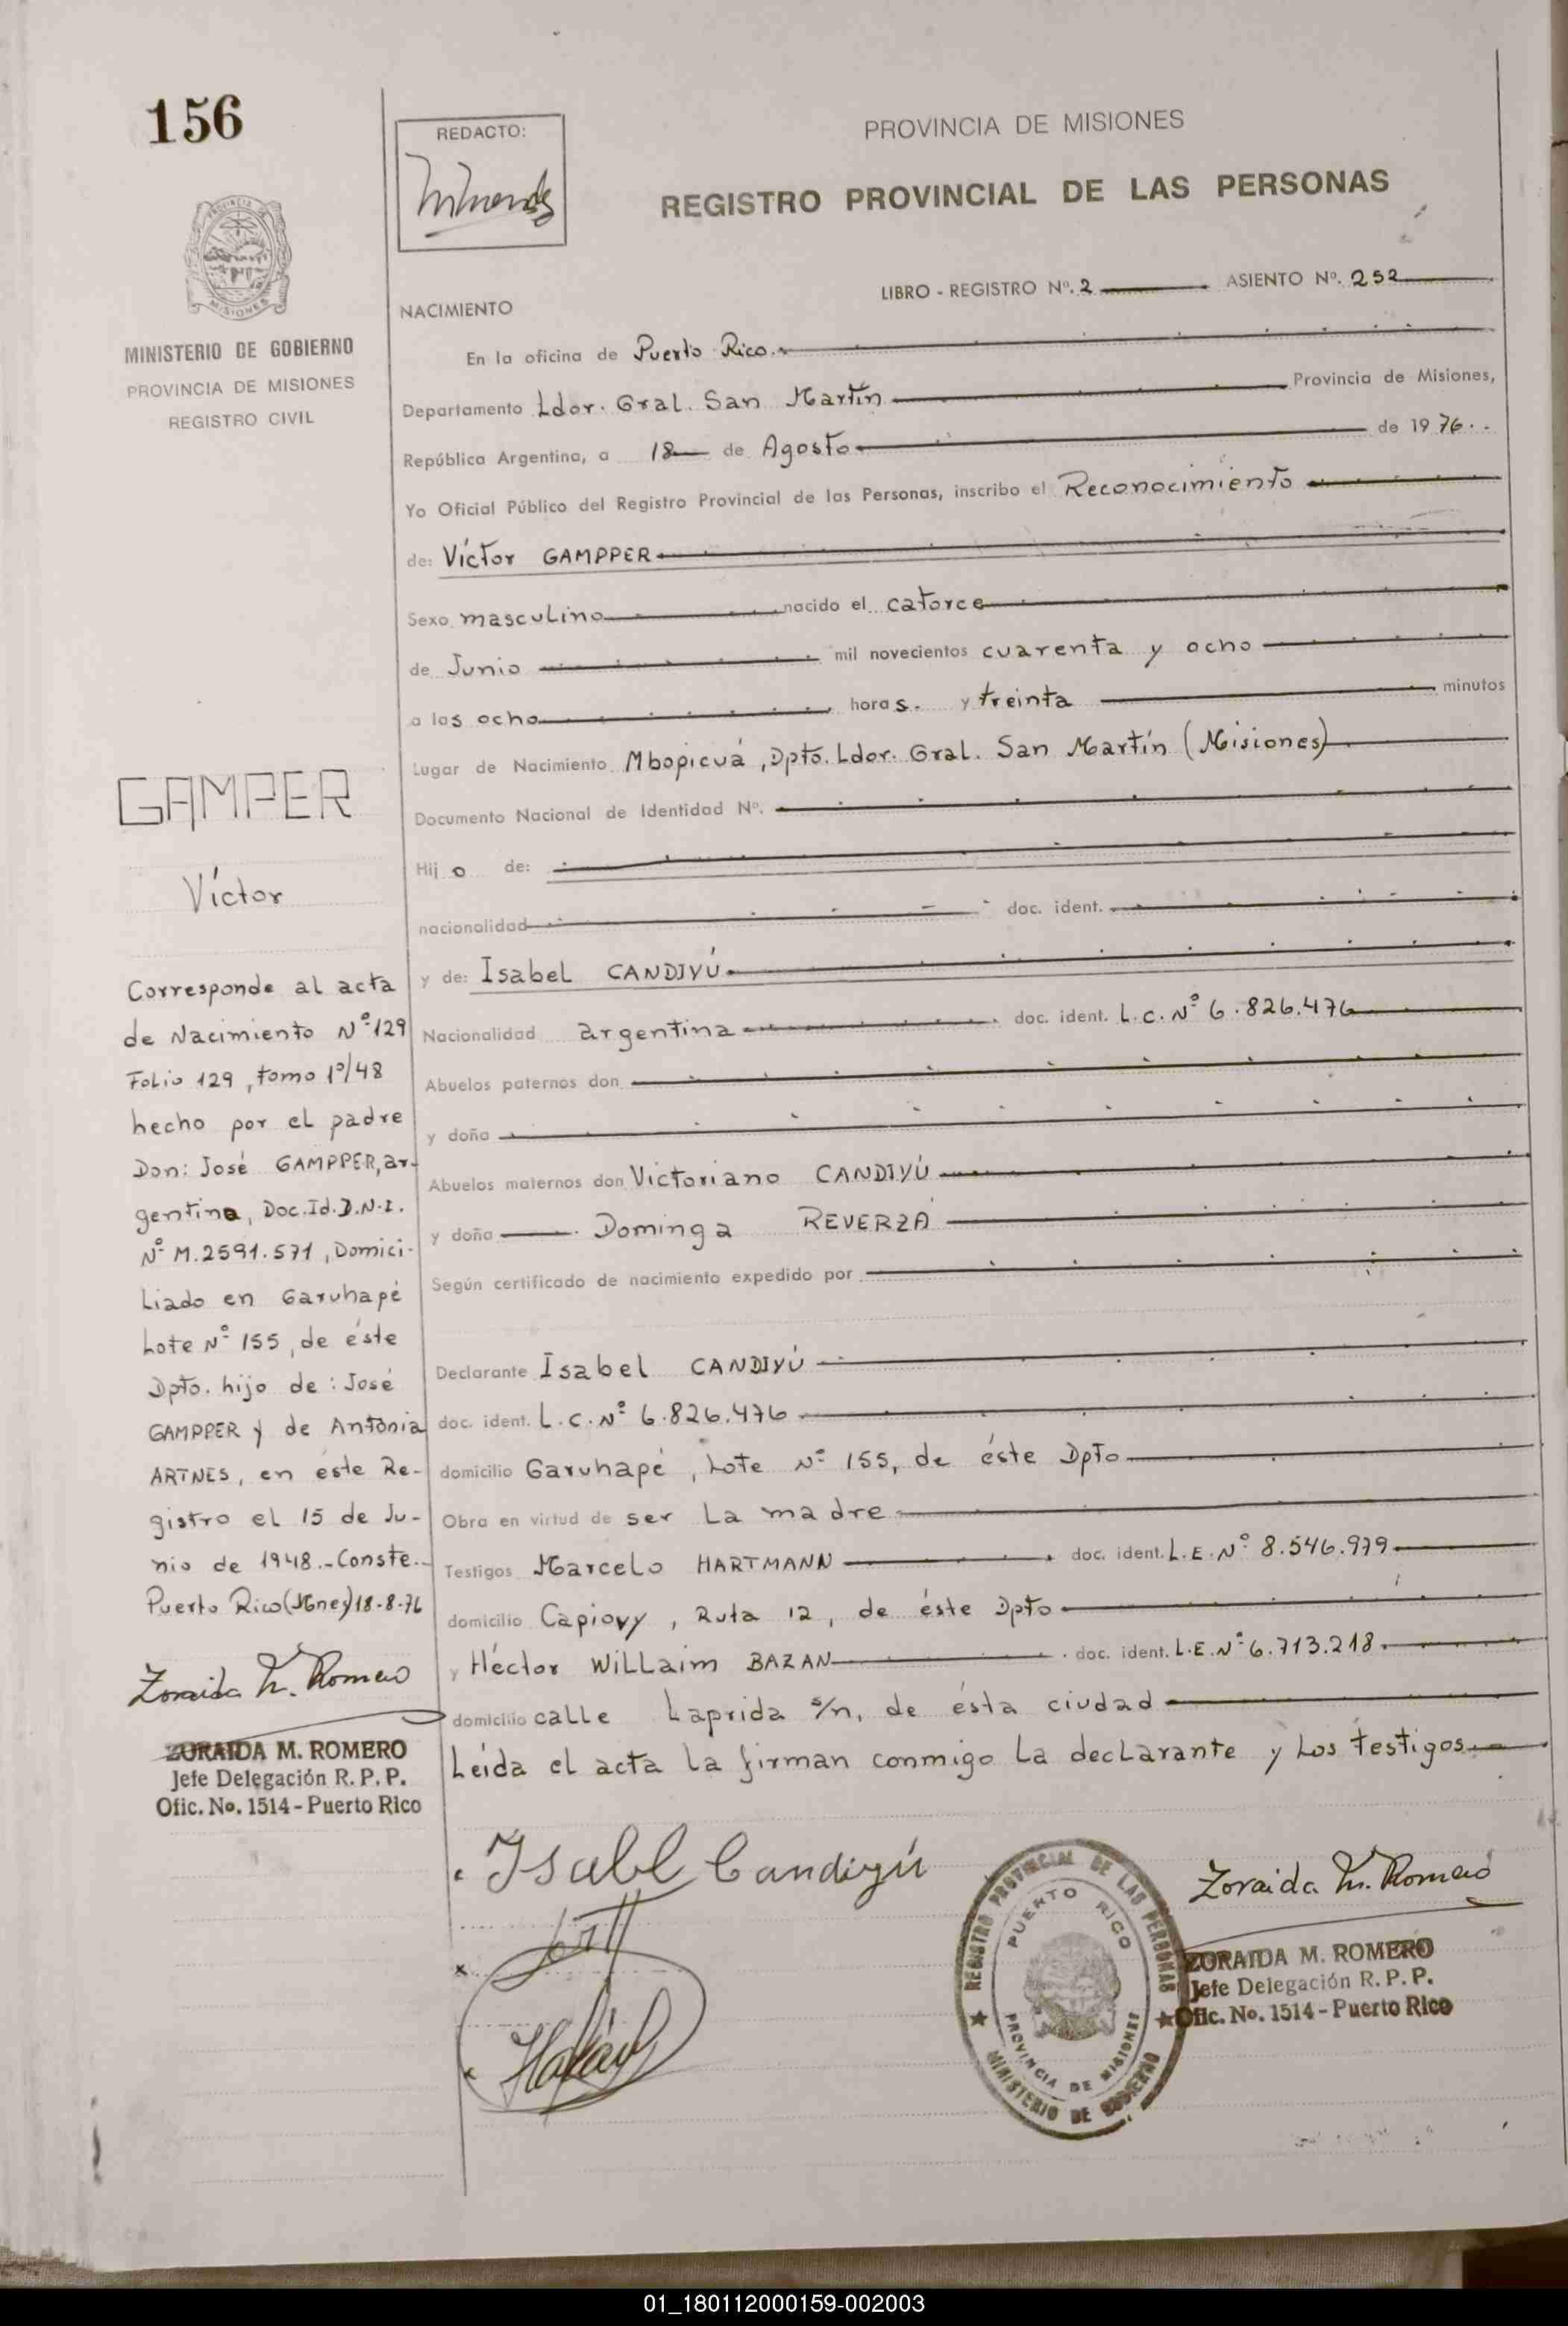 156
REDACTO:
PROVINCIA DE MISIONES
REGISTRO PROVINCIAL DE LAS PERSONAS
LIBRO - REGISTRO Nº. 2 ASIENTO Nº. 252
NACIMIENTO
MINISTERIO DE GOBIERNO
PROVINCIA DE MISIONES
REGISTRO CIVIL
En la oficina de Puerto Rico.
Departamento Ldor. Gral. San Martín Provincia de Misiones,
República Argentina, a 18 de Agosto de 1976.
Yo Oficial Público del Registro Provincial de las Personas, inscribo el Reconocimiento
de: Víctor GAMPPER
Sexo masculino nacido el catorce
de Junio mil novecientos cuarenta y ocho
a las ocho horas. y treinta minutos
Lugar de Nacimiento Mbopicuá, Dpto. Ldor. Gral. San Martín (Misiones)
Documento Nacional de Identidad Nº.
Hijo de:
nacionalidad doc. ident.
y de: Isabel CANDIYÚ
Nacionalidad argentina doc. ident. L.C. Nº 6.826.476
Abuelos paternos don
y doña
Abuelos maternos don Victoriano CANDIYÚ
y doña Dominga REVERZA
Según certificado de nacimiento expedido por
Declarante Isabel CANDIYÚ
doc. ident. L.C. Nº 6.826.476
domicilio Garuhapé, Lote Nº 155, de éste Dpto
Obra en virtud de ser la madre
Testigos Marcelo HARTMANN doc. ident. L.E. Nº 8.546.979
domicilio Capiovy, Ruta 12, de éste Dpto
y Héctor WiLLaim BAZAN doc. ident. L.E. Nº 6.713.218
domicilio calle Laprida s/n, de ésta ciudad
Leída el acta la firman conmigo la declarante y los testigos
GAMPER
Víctor
Corresponde al acta
de Nacimiento Nº 129
Folio 129, tomo 1º/48
hecho por el padre
Don: José GAMPPER, ar-
gentina, Doc. Id. D.N.I.
Nº M.2591.571, Domici-
liado en Garuhapé
Lote Nº 155, de éste
Dpto. hijo de: José
GAMPPER y de Antonia
ARTNES, en éste Re-
gistro el 15 de Ju-
nio de 1948.- Conste.-
Puerto Rico (Mnes) 18-8-76
Zoraida M. Romero
ZORAIDA M. ROMERO
Jefe Delegación R. P. P.
Ofic. No. 1514 - Puerto Rico
Isabel Candiyú
REGISTRO PROVINCIAL DE LAS PERSONAS
PUERTO RICO
PROVINCIA DE MISIONES
MINISTERIO DE GOBIERNO
Zoraida M. Romero
ZORAIDA M. ROMERO
Jefe Delegación R. P. P.
Ofic. No. 1514 - Puerto Rico
01_180112000159-002003